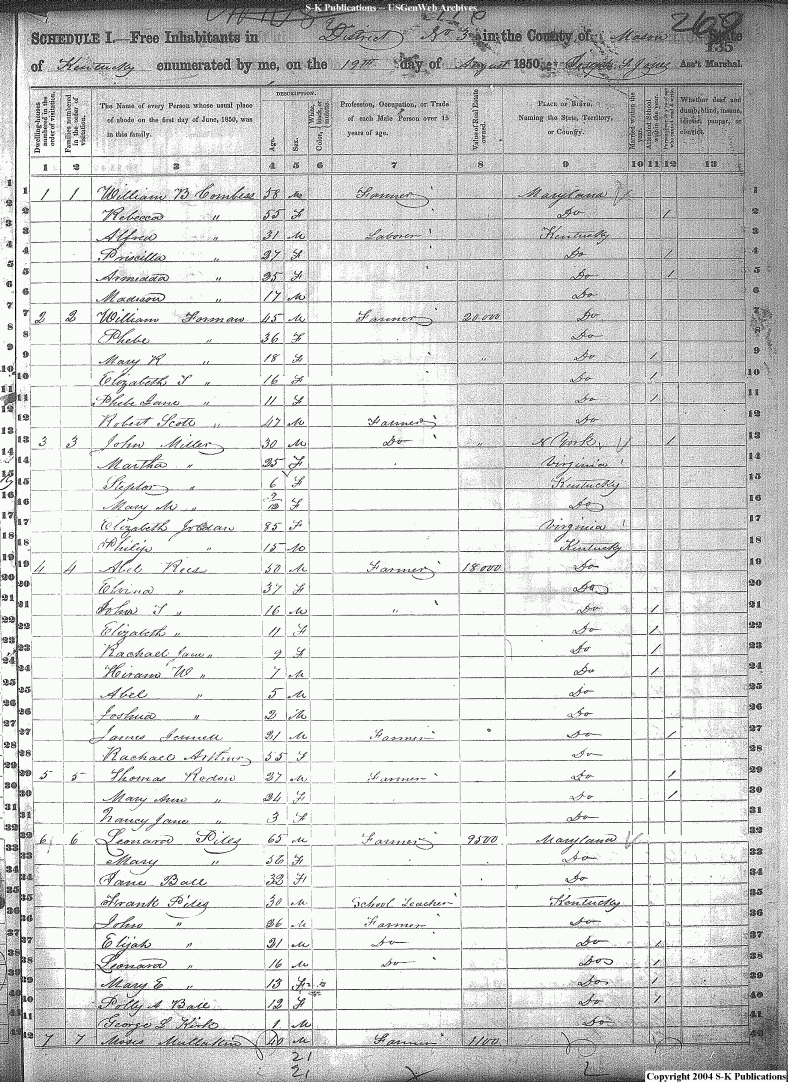 S-K Publications -- USGenWeb Archives
269
SCHEDULE I.—Free Inhabitants in District No 3 in the County of Mason State
135
of Kentucky enumerated by me, on the 19th day of August 1850. Ass't Marshal.
Dwelling-houses numbered in the order of visitation.
Families numbered in the order of visitation.
The Name of every Person whose usual place of abode on the first day of June, 1850, was in this family.
DESCRIPTION.
Age.
Sex.
Color, White, black, or mulatto.
Profession, Occupation, or Trade of each Male Person over 15 years of age.
Value of Real Estate owned.
PLACE OF BIRTH. Naming the State, Territory, or Country.
Married within the year.
Whether deaf and dumb, blind, insane, idiotic, pauper, or convict.
1 2 3 4 5 6 7 8 9 10 11 12 13
1 1 1 William B Combess 58 M Farmer Maryland 1
2 Rebecca " 55 F Do 1 2
3 Alfred " 31 M Laborer Kentucky 3
4 Priscilla " 27 F Do 1 4
5 Armidda " 25 F Do 1 5
6 Madison " 17 M Do 6
7 2 2 William Forman 45 M Farmer 20.000 Do 7
8 Phebe " 36 F Do 8
9 Mary R " 18 F " Do 1 9
10 Elizabeth T " 16 F Do 1 10
11 Phebe Jane " 11 F Do 1 11
12 Robert Scott " 47 M Farmer Do 12
13 3 3 John Miller 30 M Do " N York 1 13
14 Martha " 25 F Virginia 14
15 " 6 F Kentucky 15
16 Mary M " 12 F Do 16
17 Elizabeth Jordan 85 F Virginia 17
18 Philip " 15 M Kentucky 18
19 4 4 Abel Rees 50 M Farmer 18.000 Do 19
20 " 37 F Do 20
21 John T " 16 M " Do 1 21
22 Elizabeth " 11 F Do 1 22
23 Rachael Jane " 9 F Do 1 23
24 Hiram W " 7 M Do 1 24
25 Abel " 5 M Do 25
26 Joshua " 2 M Do 26
27 James 21 M Farmer Do 1 27
28 Rachael Arthur 55 F Do 28
29 5 5 Thomas 27 M Farmer Do 1 29
30 Mary Ann " 24 F Do 1 30
31 Nancy Jane " 3 F Do 31
32 6 6 Leonard Piles 65 M Farmer 9500 Maryland 32
33 Mary " 56 F Do 33
34 Jane Ball 32 F Do 34
35 Frank Piles 30 M School Teacher Kentucky 35
36 John " 26 M Farmer Do 36
37 Elijah " 21 M Do Do 1 37
38 Leonard " 16 M Do Do 1 38
39 Mary E " 13 F Do 1 39
40 Polly A Ball 12 F Do 1 40
41 George L Kirk 1 M Do 41
42 7 7 Moses Mullakin 40 M Farmer 1100 42
21
21
Copyright 2004 S-K Publications